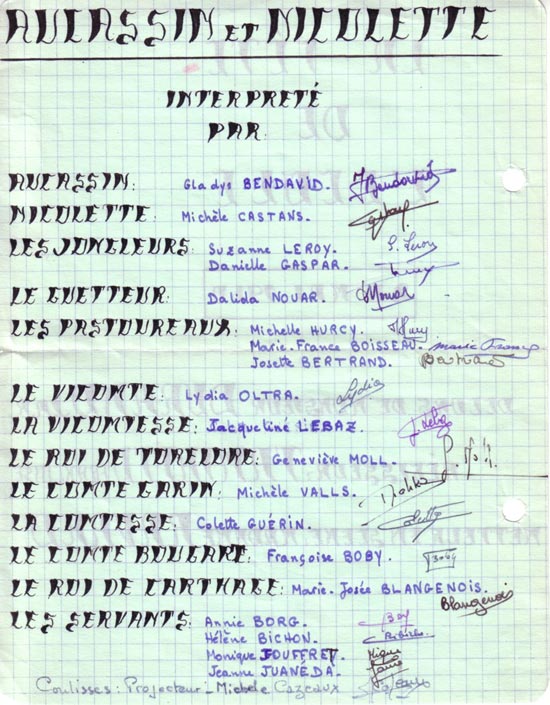 AUCASSIN ET NICOLETTE
INTERPRETÉ
PAR
AUCASSIN: Gladys BENDAVID. Bendavid
NICOLETTE: Michèle CASTANS.
LES JONGLEURS: Suzanne LEROY. S. Leroy
Danielle GASPAR.
LE GUETTEUR: Dalida NOUAR. Nouar
LES PASTOUREAUX: Michelle HURCY. Hurcy
Marie-France BOISSEAU. Marie France
Josette BERTRAND. Bertrand
LE VICOMTE: Lydia OLTRA. Lydia
LA VICOMTESSE: Jacqueline LEBAZ. J. Lebaz
LE ROI DE TORELORE: Geneviève MOLL.
LE COMTE GARIN: Michèle VALLS.
LA COMTESSE: Colette GUÉRIN. Colette
LE COMTE BOUGART: Françoise BOBY. Boby
LE ROI DE CARTHAGE: Marie-Josée BLANGENOIS.
Blangenois
LES SERVANTS: Annie BORG. Borg
Hélène BICHON.
Monique JOUFFRET.
Jeanne JUANÉDA.
Coulisses: Projecteur - Michele Cazeaux